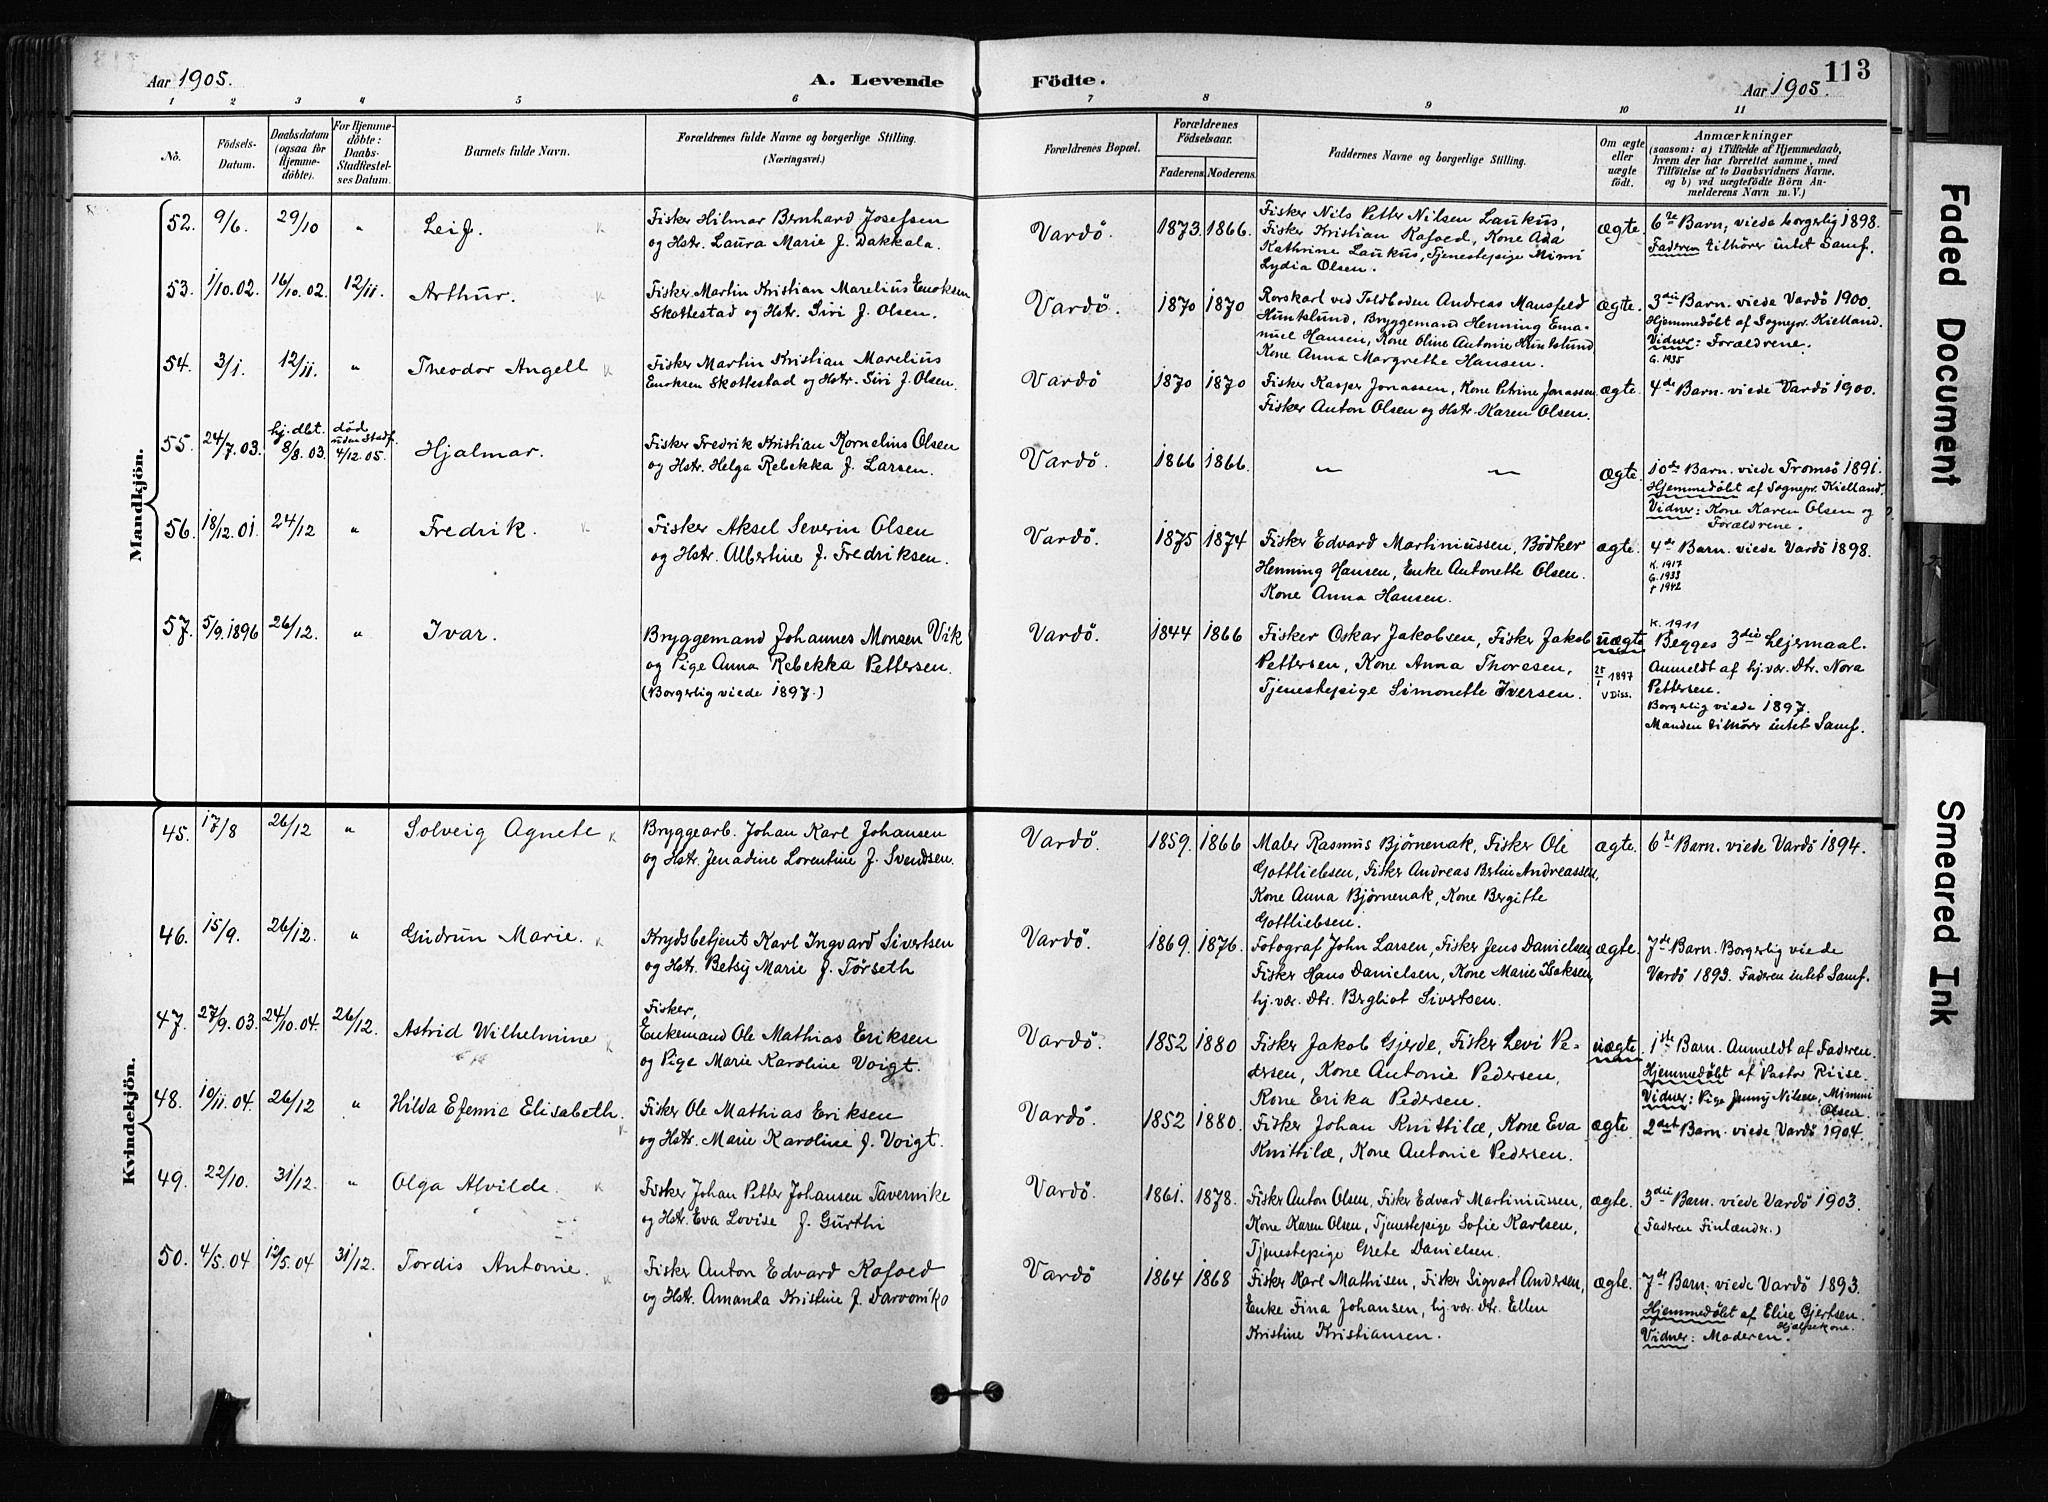 Aar 1905.
A. Levende
Födte.
Aar 1905.
113
1 2 3 4 5 6 7 8 9 10 11
No.
Födsels-Datum.
Daabsdatum (ogsaa for Hjemmedöbte).
For Hjemmedöbte: Daabs-Stadfestelses Datum.
Barnets fulde Navn.
Forældrenes fulde Navne og borgerlige Stilling.
(Næringsvei.)
Forældrenes Bopæl.
Forældrenes Födselsaar.
Faderens. Moderens.
Faddernes Navne og borgerlige Stilling.
Om ægte eller uægte födt.
Anmærkninger
(saasom: a) i Tilfælde af Hjemmedaab, hvem der har forrettet samme, med Tilföielse af to Daabsvidners Navne, og b) ved uægtefödte Börn Anmelderens Navn m. V.)
Mandkjön.
52. 9/6. 29/10 " Leif.
Fisker Hilmar Bernhard Josefsen
og Hstr. Laura Marie f. Dakkala.
Vardö. 1873. 1866.
Fisker Nils Petter Nilsen Laukus,
Fisker Kristian Kofoed, Kone Ada
Kathrine Laukus, Tjenestepige Mimi
Lydia Olsen.
ægte.
6te Barn, viede borgerlig 1898.
Faderen tilhører intet Samf.
53. 1/10.02. 16/10.02. 12/11. Arthur.
Fisker Martin Kristian Marelius Enoksen
Skottestad og Hstr. Siri f. Olsen.
Vardö. 1870 1870
Rorskarl ved Toldboden Andreas Mansfeld
Huntslund, Bryggemand Henning Ema-
nuel Hansen, Kone Oline Antonie Huntslund
Kone Anna Margrethe Hansen.
ægte.
3die Barn. viede Vardö 1900.
Hjemmedöbt af Sognepr. Kielland.
Vidner: Forældrene.
G. 1935
54. 3/1. 12/11. " Theodor Angell
Fisker Martin Kristian Marelius
Enoksen Skottestad og Hstr. Siri f. Olsen.
Vardö 1870 1870
Fisker Kasper Jonassen, Kone Petrine Jonassen
Fisker Anton Olsen og Hstr. Karen Olsen.
ægte.
4de Barn. viede Vardö 1900.
55. 24/7.03. hj. dbt. 8/8.03. död uden Stadf. 4/12.05. Hjalmar.
Fisker Fredrik Kristian Kornelius Olsen
og Hstr. Helga Rebekka f. Larsen.
Vardö. 1866 1866. " "
ægte.
10de Barn. viede Tromsö 1891.
Hjemmedöbt af Sognepr. Kielland.
Vidner: Kone Karen Olsen og
Forældrene.
56. 18/12.01. 24/12 " Fredrik.
Fisker Aksel Severin Olsen
og Hstr. Albertine f. Fredriksen.
Vardö. 1875 1874
Fisker Edvard Martiniussen, Bödker
Henning Hansen, Enke Antonette Olsen.
Kone Anna Hansen.
ægte.
4de Barn. viede Vardö 1898.
K. 1917
G. 1933
† 1942
57. 5/9.1896 26/12. " Ivar.
Bryggemand Johannes Monsen Vik
og Pige Anna Rebekka Pettersen.
(Borgerlig viede 1897.)
Vardö. 1844 1866
Fisker Oskar Jakobsen, Fisker Jakob
Pettersen, Kone Anna Thoresen,
Tjenestepige Simonette Iversen.
uægte
25/1 1897
v Diss.
K. 1911
Begges 3die Lejermaal.
Anmeldt af hj.vær. Dtr. Nora
Pettersen.
Borgerlig viede 1897.
Manden tilhører intet Samf.
Kvindekjön.
45. 17/8 26/12 " Solveig Agnete
Bryggearb. Johan Karl Johansen
og Hstr. Jenadine Lorentine f. Svendsen.
Vardö. 1859. 1866
Maler Rasmus Bjørnenak, Fisker Ole
Gottliebsen, Fisker Andreas Berlin Andreassen,
Kone Anna Bjørnenak, Kone Bergitte
Gottliebsen.
ægte.
6te Barn. viede Vardö 1894.
46. 15/9. 26/12. " Gudrun Marie.
Krydsbetjent Karl Ingvard Sivertsen
og Hstr. Betsy Marie f. Törseth
Vardö. 1869. 1876.
Fotograf John Larsen, Fisker Jens Danielsen,
Fisker Hans Danielsen, Kone Marie Isaksen,
hj.vær. Dtr. Bergliot Sivertsen.
ægte.
7de Barn. Borgerlig viede
Vardö 1893. Faderen intet Samf.
47. 27/9.03. 24/10.04. 26/12. Astrid Wilhelmine
Fisker,
Enkemand Ole Mathias Eriksen
og Pige Marie Karoline Voigt.
Vardö. 1852 1880
Fisker Jakob Gjerde, Fisker Levi Pe-
dersen, Kone Antonie Pedersen,
Kone Erika Pedersen.
uægte.
1ste Barn. Anmeldt af Faderen.
Hjemmedöbt af Pastor Riise.
Vidner: Pige Jenny Nilsen, Mimmi
Olsen.
48. 10/11.04. 26/12 " Hilda Efemie Elisabeth.
Fisker Ole Mathias Eriksen
og Hstr. Marie Karoline f. Voigt.
Vardö. 1852 1880.
Fisker Johan Knittilæ, Kone Eva
Knittilæ, Kone Antonie Pedersen.
ægte
2det Barn. viede Vardö 1904.
49. 22/10. 31/12. " Olga Alvilde.
Fisker Johan Petter Johansen Tavernike
og Hstr. Eva Lovise f. Gurthi
Vardö. 1861. 1878.
Fisker Anton Olsen, Fisker Edvard Martiniussen,
Kone Karen Olsen, Tjenestepige Sofie Karlsen,
Tjenestepige Grete Danielsen.
ægte.
3die Barn. viede Vardö 1903.
(Faderen Finlænder.)
50. 4/5.04 12/5.04 31/12. Tordis Antonie.
Fisker Anton Edvard Kofoed
og Hstr. Amanda Kristine f. Darvoniko
Vardö 1864 1868
Fisker Karl Mathisen, Fisker Sigvart Andersen,
Enke Fina Johansen, hj.vær. Dtr. Ellen
Kristine Kristiansen.
ægte.
7de Barn. viede Vardö 1893.
Hjemmedöbt af Elise Gjertsen.
Hjælpekone.
Vidner: Moderen.
Faded Document
Smeared Ink